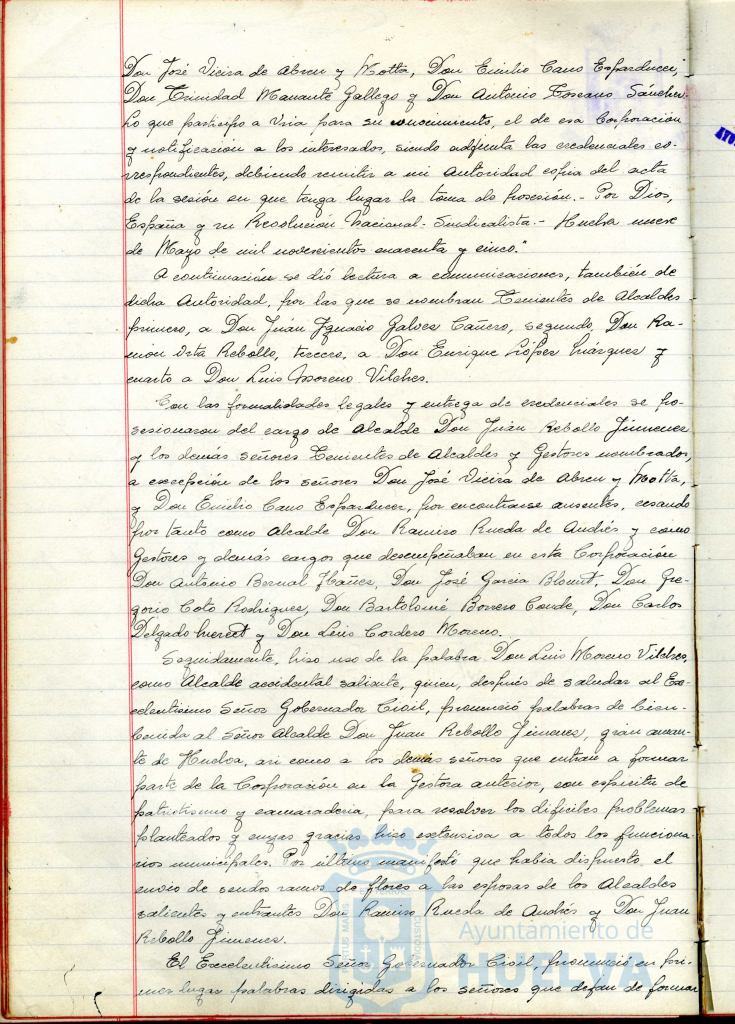 Don José Vieira de Abreu y Motta, Don Emilio Cano Esparducer,
Don Trinidad Manante Gallego y Don Antonio Toscano Sánchez.
Lo que participo a Vria para su conocimiento, el de esa Corporación
y notificación a los interesados, siendo adjunta las credenciales co-
rrespondientes, debiendo remitir a mi Autoridad copia del acta
de la sesión en que tenga lugar la toma de posesión.- Por Dios,
España y su Revolución Nacional-Sindicalista.- Huelva nueve
de Mayo de mil novecientos cuarenta y cinco."
A continuación se dió lectura a comunicaciones, también de
dicha Autoridad, por las que se nombran Tenientes de Alcaldes
primero, a Don Juán Ignacio Galvez Cañero, segundo, Don Ra-
món Orta Rebollo, tercero, a Don Enrique López Márquez y
cuarto a Don Luis Moreno Vilches.
Con las formalidades legales y entrega de credenciales se po-
sesionaron del cargo de Alcalde Don Juán Rebollo Jimenez
y los demás señores Tenientes de Alcaldes y Gestores nombrados,
a excepción de los señores Don José Vieira de Abreu y Motta,
y Don Emilio Cano Esparducer, por encontrarse ausentes, cesando
por tanto como Alcalde Don Ramiro Rueda de Andrés y como
Gestores y demás cargos que desempeñaban en esta Corporación
Don Antonio Bernal Ibañez, Don José Garcia Don Gre-
gorio Coto Rodriguez, Don Bartolomé Borrero Conde, Don Carlos
Delgado y Don Luis Cordero Moreno.
Seguidamente, hizo uso de la palabra Don Luis Moreno Vilches,
como Alcalde accidental saliente, quien, después de saludar al Ex-
celentísimo Señor Gobernador Civil, pronunció palabras de bien-
venida al Señor Alcalde Don Juan Rebollo Jimenez, gran aman-
te de Huelva, asi como a los demás señores que entran a formar
parte de la Corporación en la Gestora anterior, con espiritu de
patriotismo y camaraderia, para resolver los dificiles problemas
planteados y cuyas gracias hizo extensiva a todos los funciona-
rios municipales. Por último manifestó que habia dispuesto el
envio de sendos ramos de flores a las esposas de los Alcaldes
salientes y entrantes Don Ramiro Rueda de Andrés y Don Juan
Rebollo Jimenez.
El Excelentísimo Señor Gobernador Civil, pronunció en pri-
mer lugar palabras dirigidas a los señores que dejan de formar
Ayuntamiento de
HUELVA